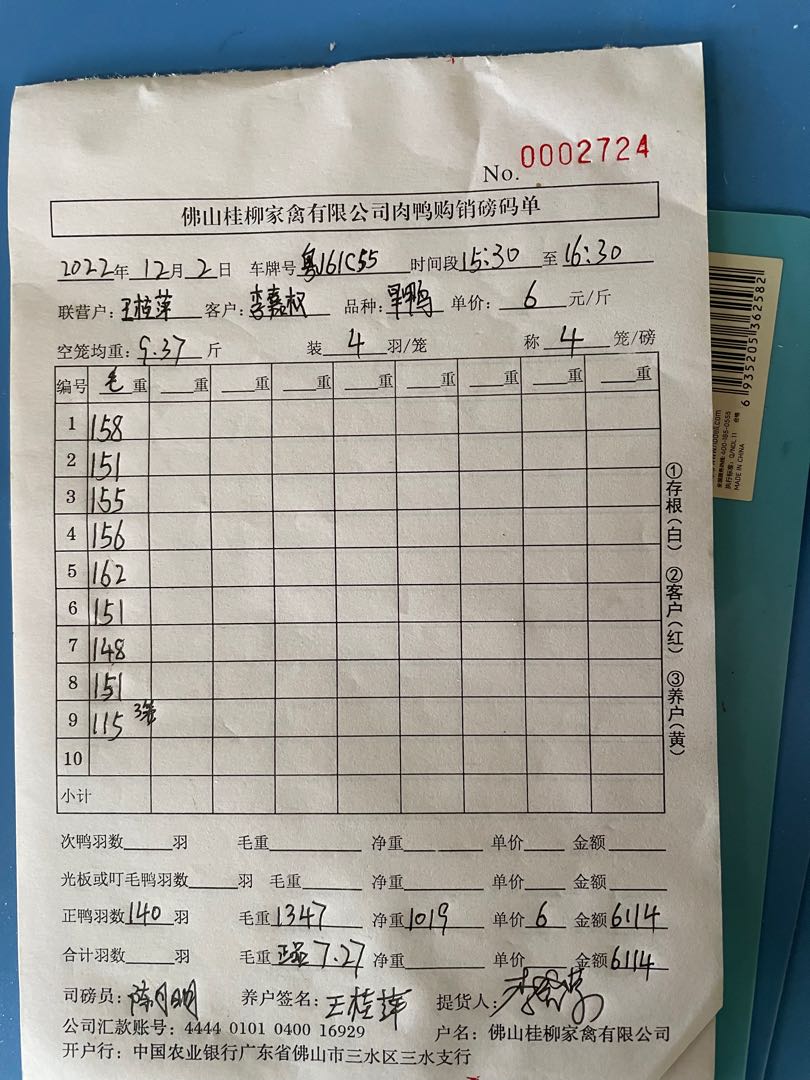 No. 0002724
佛山桂柳家禽有限公司肉鸭购销磅码单
2022年 12月 2日 车牌号 粤J61C55 时间段 15:30 至 16:30
联营户: 王桂萍 客户: 李嘉权 品种: 旱鸭 单价: 6 元/斤
空笼均重: 9.37 斤 装 4 羽/笼 称 4 笼/磅
编号 毛重 重 重 重 重 重 重 重 重
1 158
2 151
3 155
4 156
5 162
6 151
7 148
8 151
9 115 3笼
10
小计
①存根(白) ②客户(红) ③养户(黄)
次鸭羽数 羽 毛重 净重 单价 金额
光板或叮毛鸭羽数 羽 毛重 净重 单价 金额
正鸭羽数 140 羽 毛重 1347 净重 1019 单价 6 金额 6114
合计羽数 羽 毛重 7.27 净重 单价 金额 6114
司磅员: 养户签名: 王桂萍 提货人:
公司汇款账号: 4444 0101 0400 16929 户名: 佛山桂柳家禽有限公司
开户行: 中国农业银行广东省佛山市三水区三水支行
6 935205 362582
全国服务热线:400-185-0555
执行标准: Q/NDL 11 合格
MADE IN CHINA